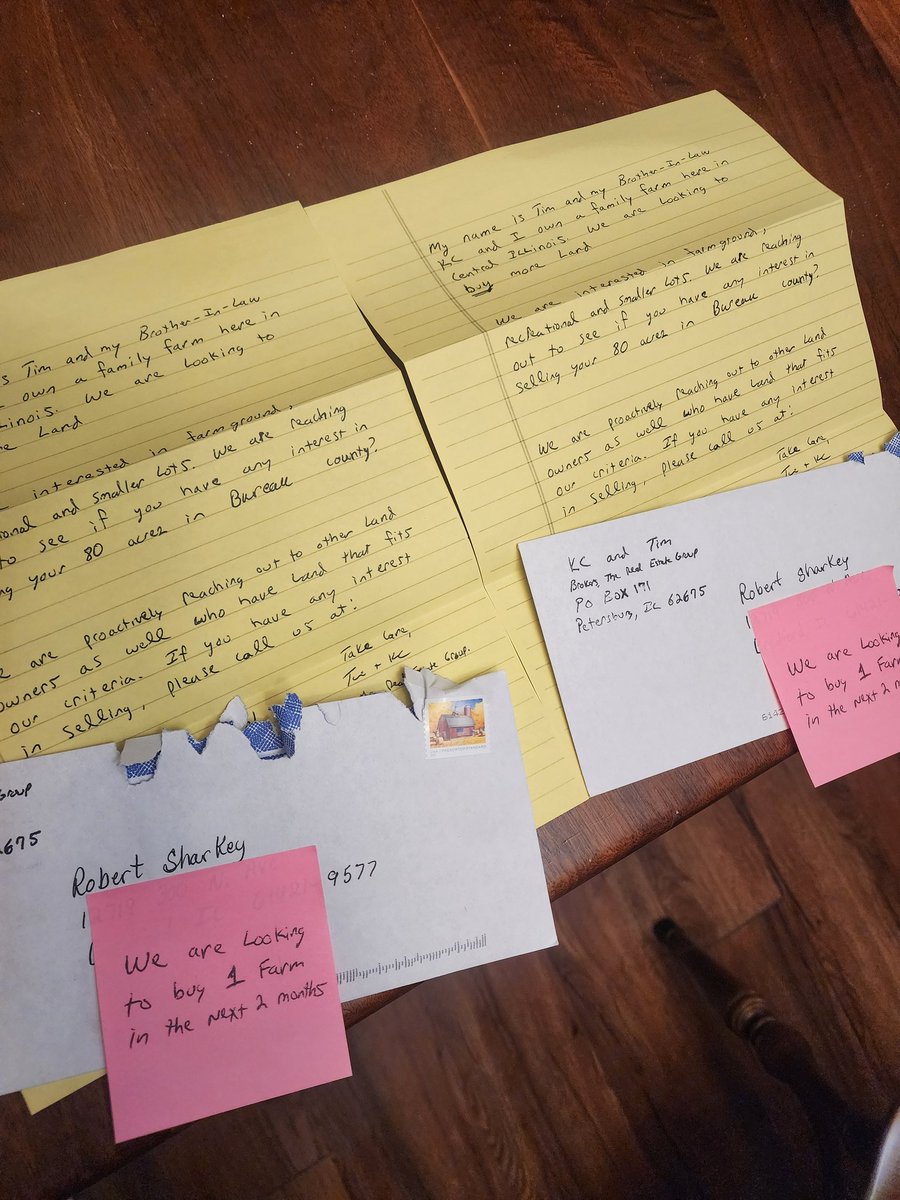 s Tim and my Brother-In-Law
own a family farm here in
linois. We are Looking to
re Land
interested in farmground,
ional and smaller Lots. We are reaching
to see if you have any interest in
ng your 80 acres in Bureau county?
e are proactively reaching out to other Land
owners as well who have Land that fits
our criteria. If you have any interest
in selling, please call us at:
Take Care,
+ KC
Group.
My name is Tim and my Brother-In-Law
KC and I own a family farm here in
Central ILLinois. We are Looking to
buy more Land
We are interested in farmground,
recreational and smaller Lots. We are reaching
out to see if you have any interest in
selling your 80 acres in Bureau county?
We are proactively reaching out to other Land
owners as well who have Land that fits
our criteria. If you have any interest
in selling, please call us at:
Take Care,
+ KC
KC and Tim
Brokers, The Real Estate Group
PO BOX 171
Petersburg, IL 62675
Robert Sharkey
We are Looking
to buy 1 Farm
in the Next 2 mon
Group
675
Robert Sharkey
9577
We are Looking
to buy 1 Farm
in the Next 2 months